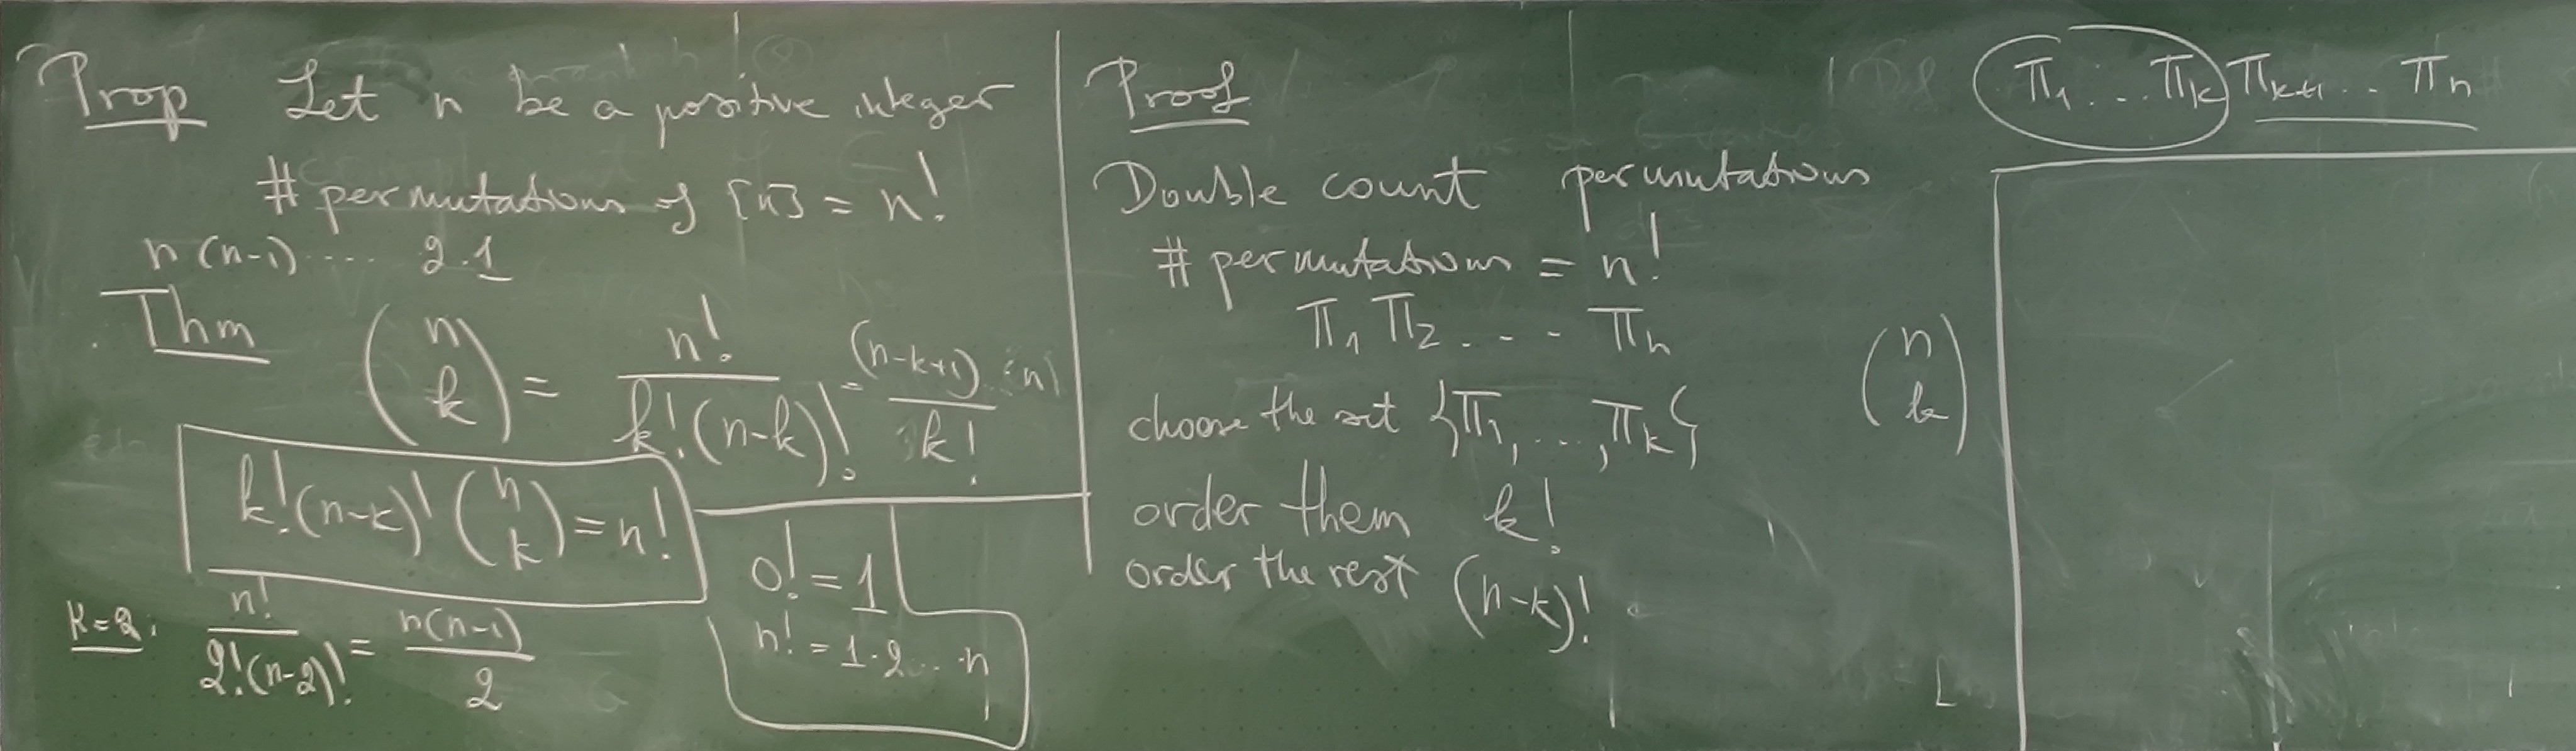 Prop Let n be a positive integer
# permutations of [n] = n!
n(n-1) .... 2.1
Thm (n k) = n! / k!(n-k)! = (n-k+1)...(n) / k!
k!(n-k)! (n k) = n!
K=2: n! / 2!(n-2)! = n(n-1) / 2
0! = 1
n! = 1·2...·n
Proof
Double count permutations
# permutations = n!
π₁ π₂ ... πₙ
choose the set {π₁, ..., πₖ} (n k)
order them k!
order the rest (n-k)!
π₁ ... πₖ πₖ₊₁ ... πₙ